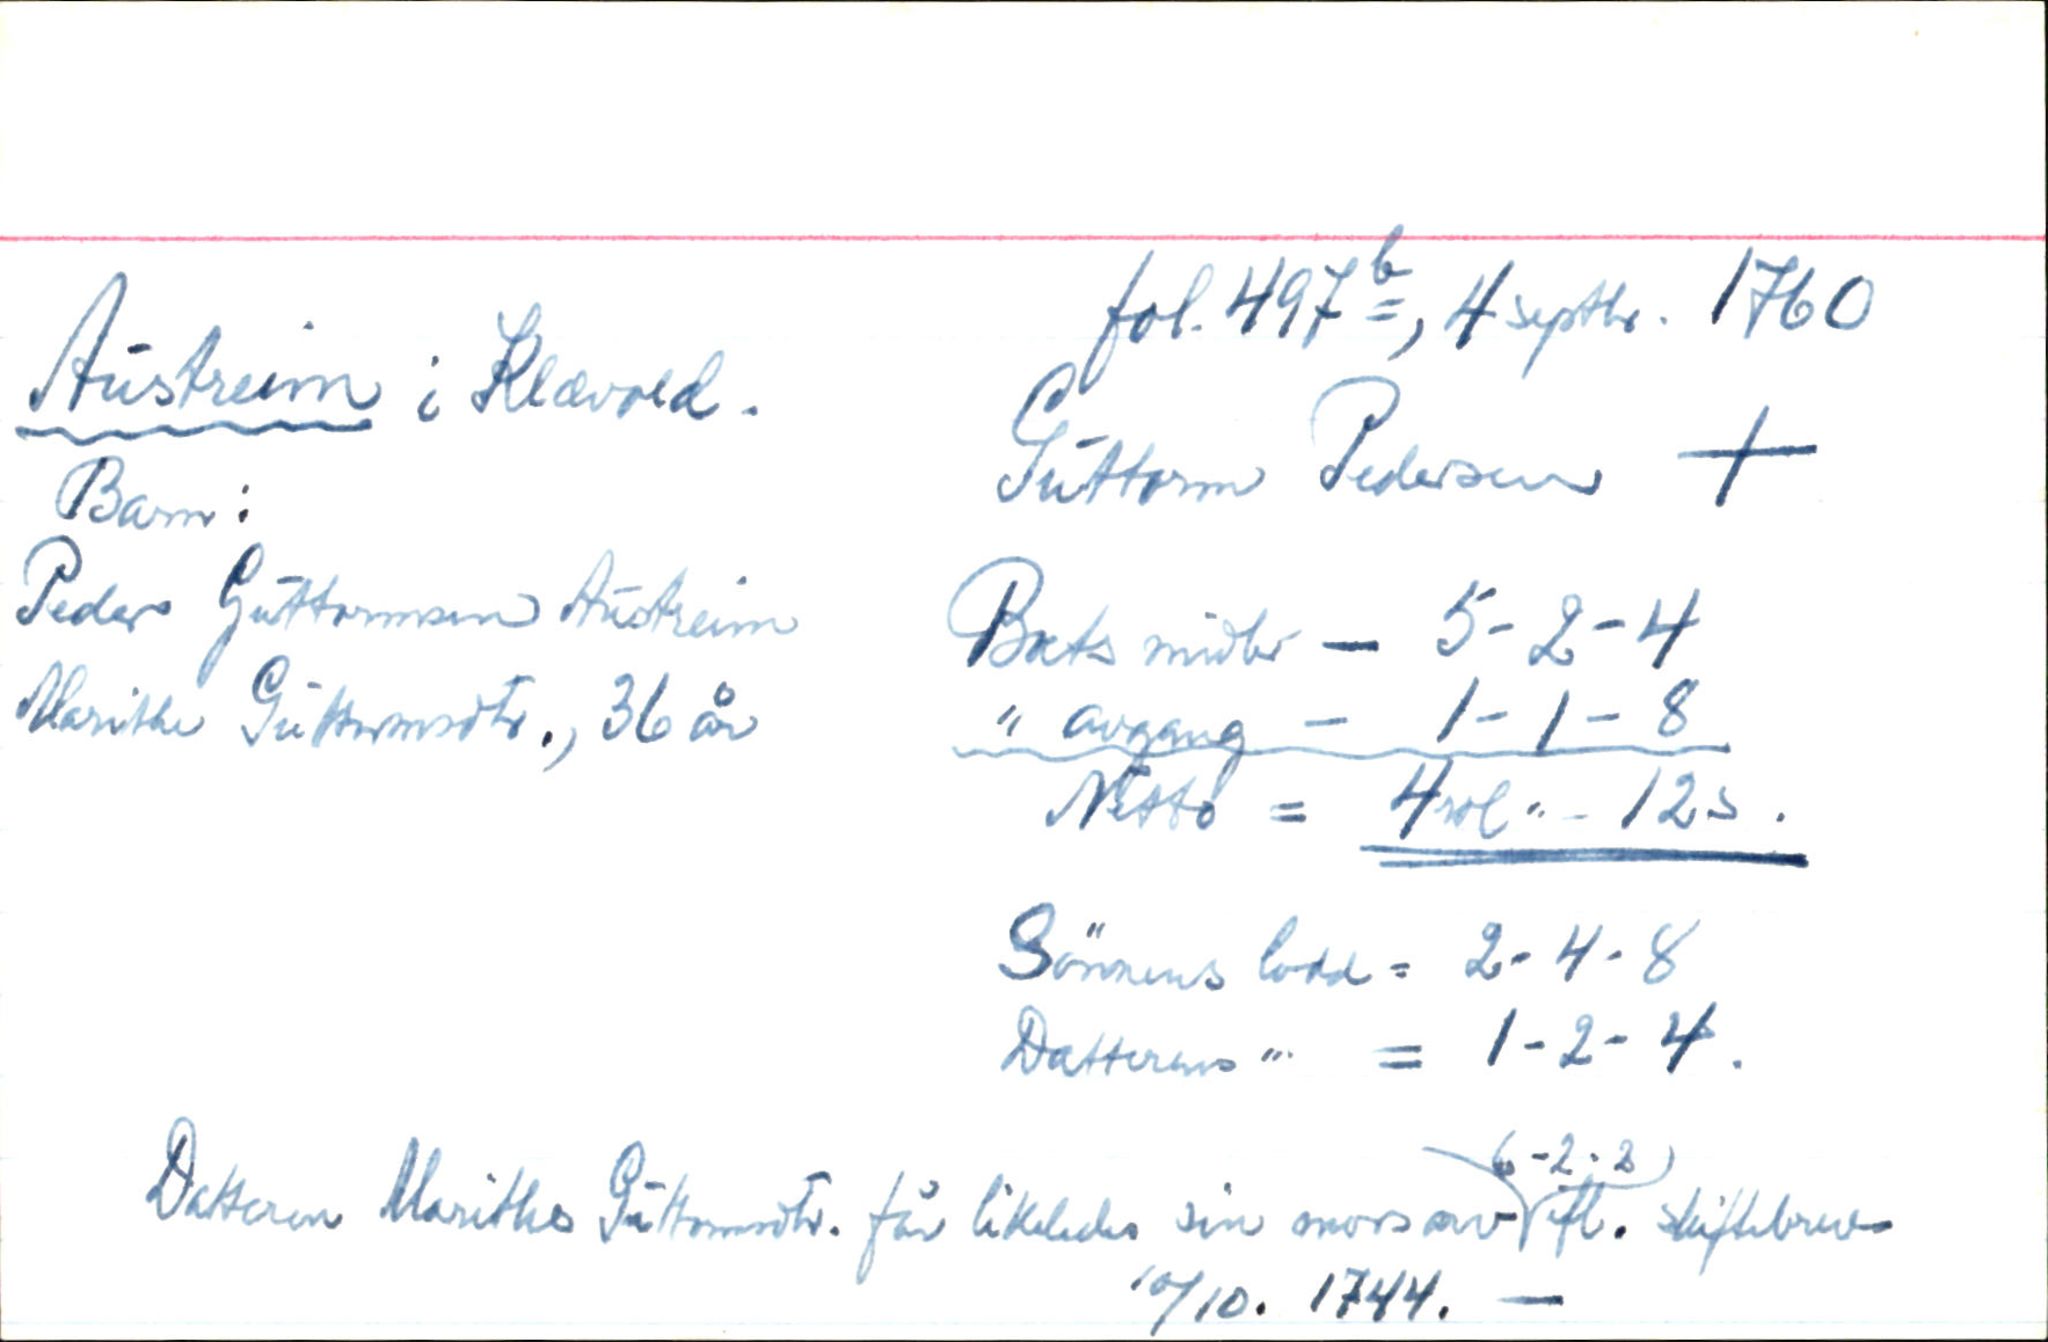 fol. 497 b, 4 septbr. 1760
Austreim i Klævold.
Guttorm Pedersen +
Barn:
Peder Guttormsen Austreim
Marithe Guttormsdtr., 36 år
Boets midler — 5-2-4
" avgang - 1-1-8
Netto = 4 rdl " - 12 s.
Sönnens lodd = 2-4-8
Datterens " = 1-2-4.
(6-2-2)
Datteren Marithe Guttormsdtr. får likeledes sin mors arv ifl. skiftebrev
10/10. 1744. —